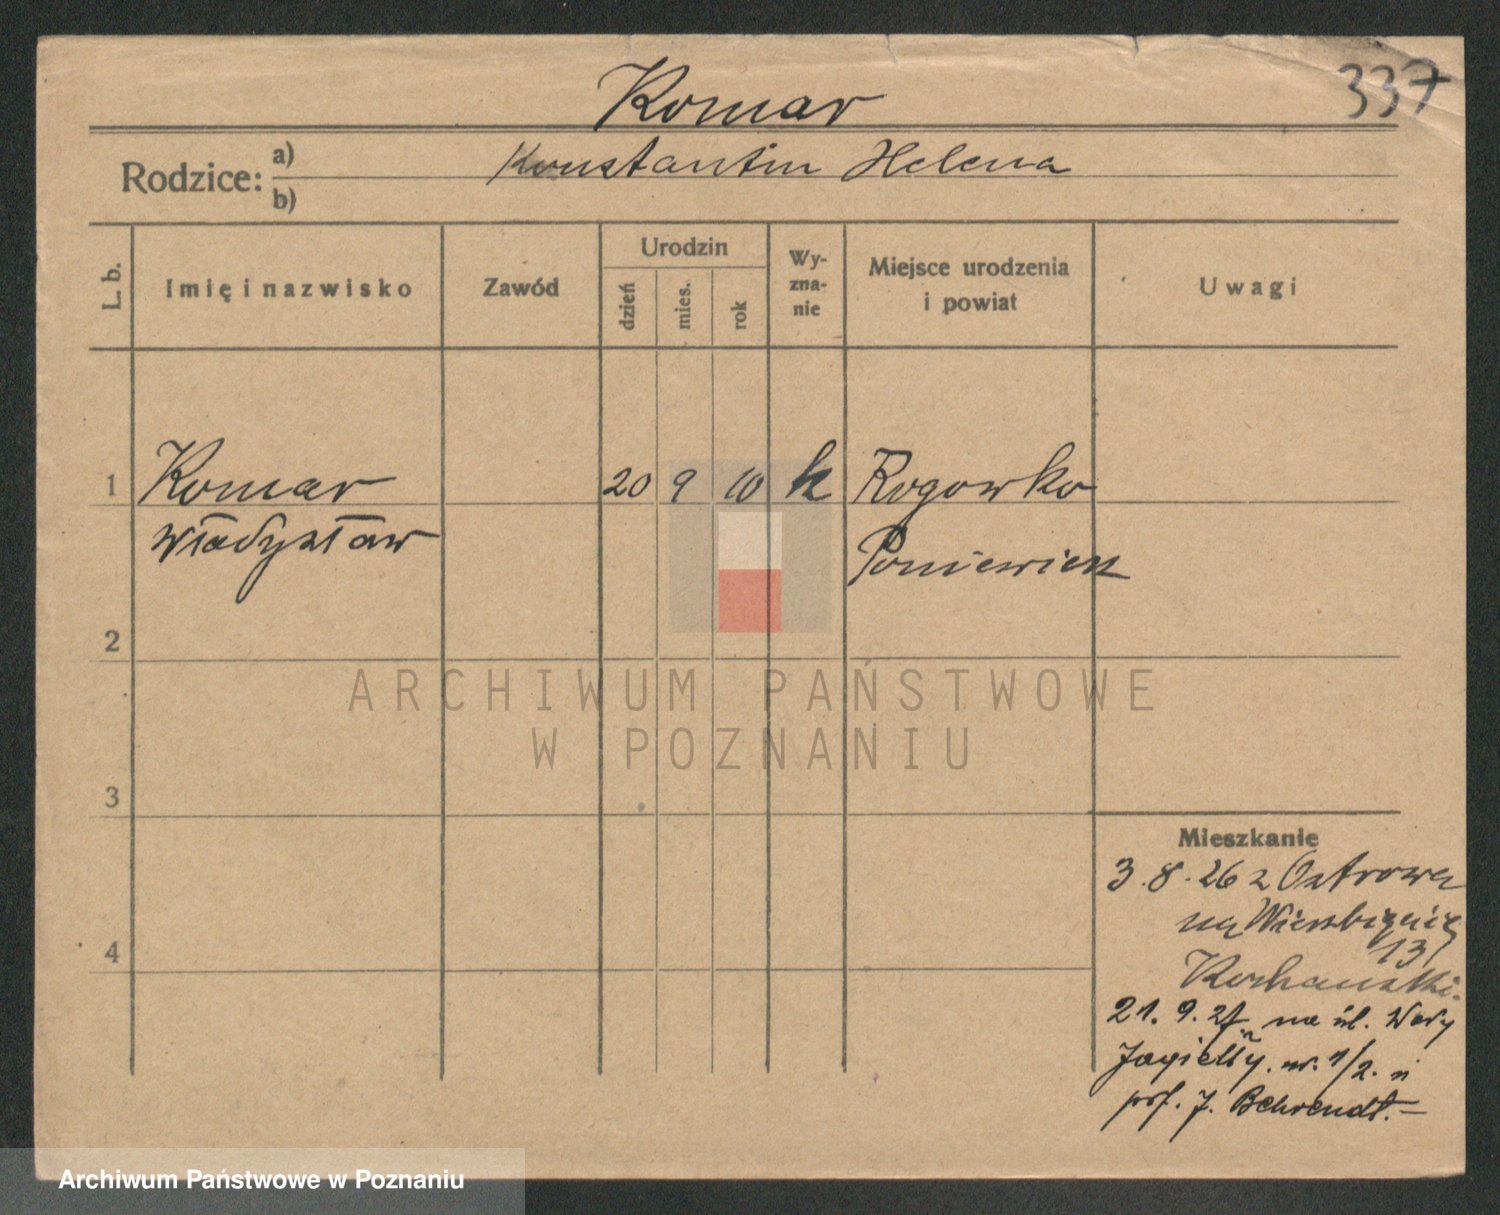 337
Komar
Rodzice: a) Konstantin Helena
b)
L. b.
Imię i nazwisko
Zawód
Urodzin
dzień
mies.
rok
Wy-
zna-
nie
Miejsce urodzenia
i powiat
Uwagi
1 Komar 20 9 10 k Rogowko
Władysław Poniewież
2
3
4
ARCHIWUM PAŃSTWOWE
W POZNANIU
Mieszkanie
3.8.26 z Ostrowa
na Wierzbięcice
13
Kochanski.
21. 9. 27 na ul. Wały
Jagiełły. nr. 1/2. u
prof. J. Behrendt.-
Archiwum Państwowe w Poznaniu